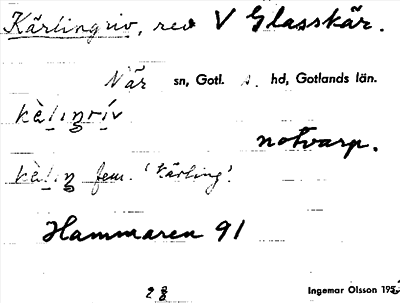 Kärlingriv, rev V Glasskär.
När sn, Gotl. s. hd, Gotlands län.
kɛ̀lıŋrív
notvarp.
kɛ̀lıŋ fem. 'kärling'.
Hammaren 91
Ingemar Olsson 195